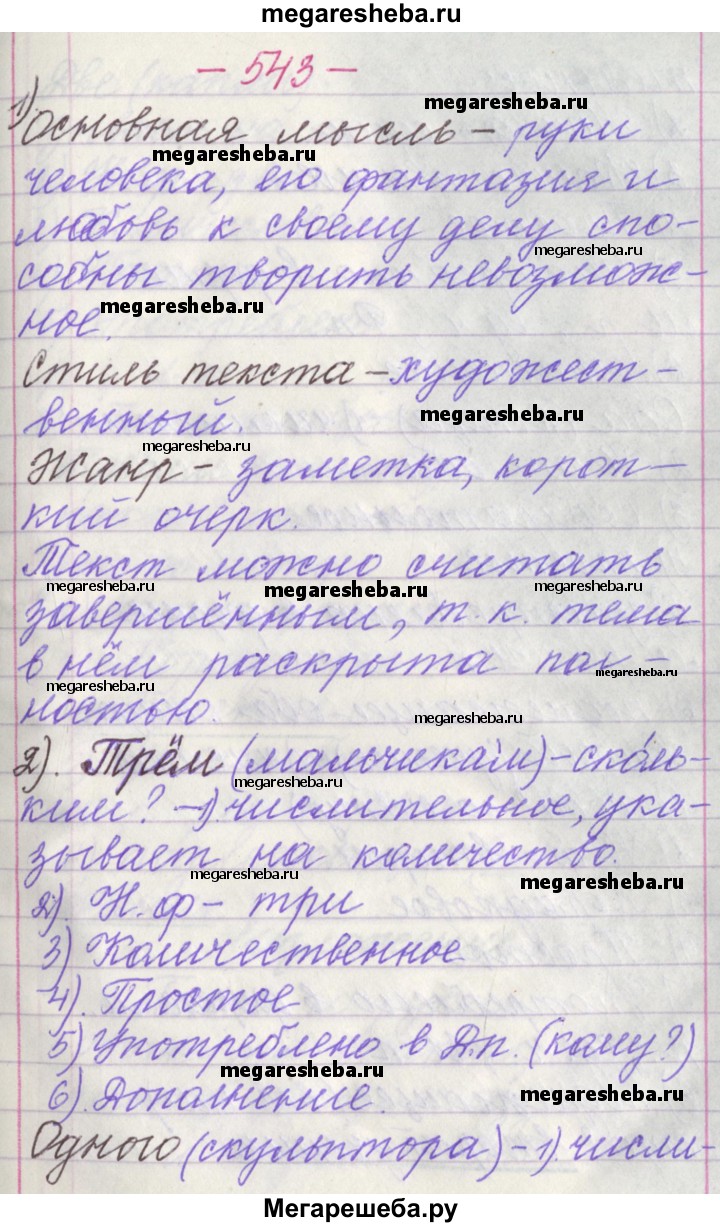 megaresheba.ru
- 543 -
megaresheba.ru
1) Основная мысль - руки
megaresheba.ru
человека, его фантазия и
любовь к своему делу спо-
megaresheba.ru
собны творить невозмож-
megaresheba.ru
ное.
Стиль текста - художест-
megaresheba.ru
венный.
megaresheba.ru
Жанр - заметка, корот-
кий очерк.
Текст можно считать
megaresheba.ru megaresheba.ru megaresheba.ru
завершённым, т. к. тема
в нём раскрыта пол-
megaresheba.ru
megaresheba.ru
ностью.
megaresheba.ru
2). Трём (мальчикам) - сколь-
megaresheba.ru
ким? - 1) числительное, ука-
зывает на количество.
megaresheba.ru
megaresheba.ru
2). Н. ф - три
3) Количественное
4). Простое
5) Употреблено в Д.п. (кому?)
megaresheba.ru
6). Дополнение.
megaresheba.ru
Одного (скульптора) - 1) числи-
megaresheba.ru
Мегарешеба.ру